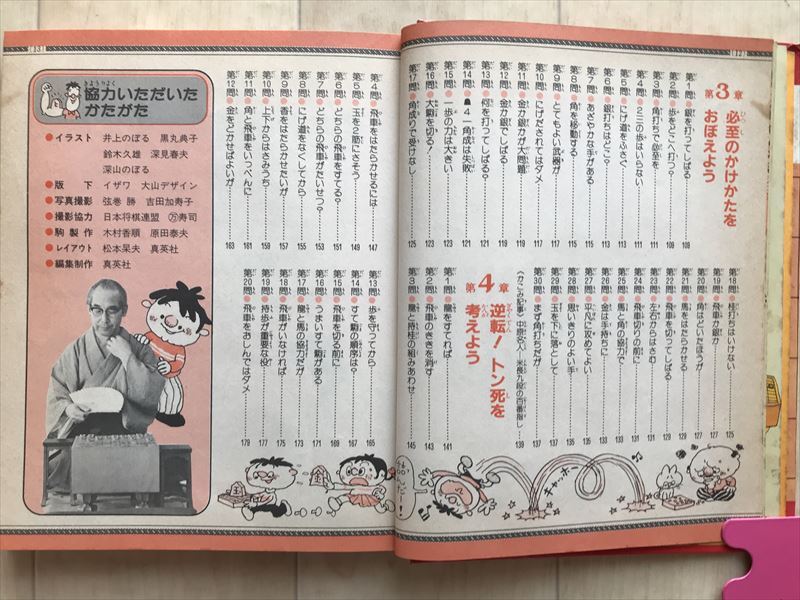 第3章 必至のかけかたを
おぼえよう
第1問●銀を打ってしばる………109
第2問●歩をどこへ打つ?………109
第3問●角打ちで必至を………111
第4問●2三の歩はいらない………111
第5問●にげ道をふさぐ………113
第6問●銀打ちはどこ?………113
第7問●あざやかな手がある………115
第8問●角を移動する………115
第9問●とてもよい武器が………117
第10問●にげだされてはダメ………117
第11問●金か銀かが大問題………119
第12問●金か銀でしばる………119
第13問●何を打ってしばる?………121
第14問●☗4一角成は失敗………121
第15問●一歩の力は大きい………123
第16問●大駒を切る!………123
第17問●角成りで受けなし………125
第18問●桂打ちはいけない………125
第19問●飛車か銀か………127
第20問●角はどいたほうが………127
第21問●馬をはたらかせる………129
第22問●飛車を切ってしばる………129
第23問●左右からはさむ………131
第24問●飛車切りの前に………131
第25問●馬と角の協力で………133
第26問●金は手持ちに………133
第27問●平凡に攻めてよい………135
第28問●思いきりのよい手………135
第29問●玉を下に落として………137
第30問●まず角打ちだが………137
〈かこみ記事〉中原名人・米長九段の百番指し………139
第4章 逆転!トン死を
考えよう
第1問●龍をすてれば………141
第2問●飛車のききを消す………143
第3問●龍と持桂の組みあわせ………145
チャッホー
第4問●飛車をはたらかせるには………147
第5問●玉を2筋にさそう………149
第6問●どちらの飛車をすてる?………151
第7問●どちらの飛車がたいせつ?………153
第8問●にげ道をなくしてから………155
第9問●香をはたらかせたいが………157
第10問●上下からはさみうち………159
第11問●角と飛車をいっぺんに………161
第12問●金をどかせばよいが………163
第13問●歩を守ってから………165
第14問●すて駒の順序は?………167
第15問●飛車を切る前に………169
第16問●うまいすて駒がある………171
第17問●龍と馬の協力だが………173
第18問●飛車がいなければ………175
第19問●持歩が重要な役………177
第20問●飛車をおしんではダメ………179
協力いただいた
かたがた
●イラスト 井上のぼる 黒丸典子
鈴木久雄 深見春夫
深山のぼる
●版下 イザワ 大山デザイン
●写真撮影 弦巻勝 吉田加寿子
●撮影協力 日本将棋連盟 ㊄寿司
●駒製作 木村香順 原田泰夫
●レイアウト 松本杲夫 真英社
●編集制作 真英社